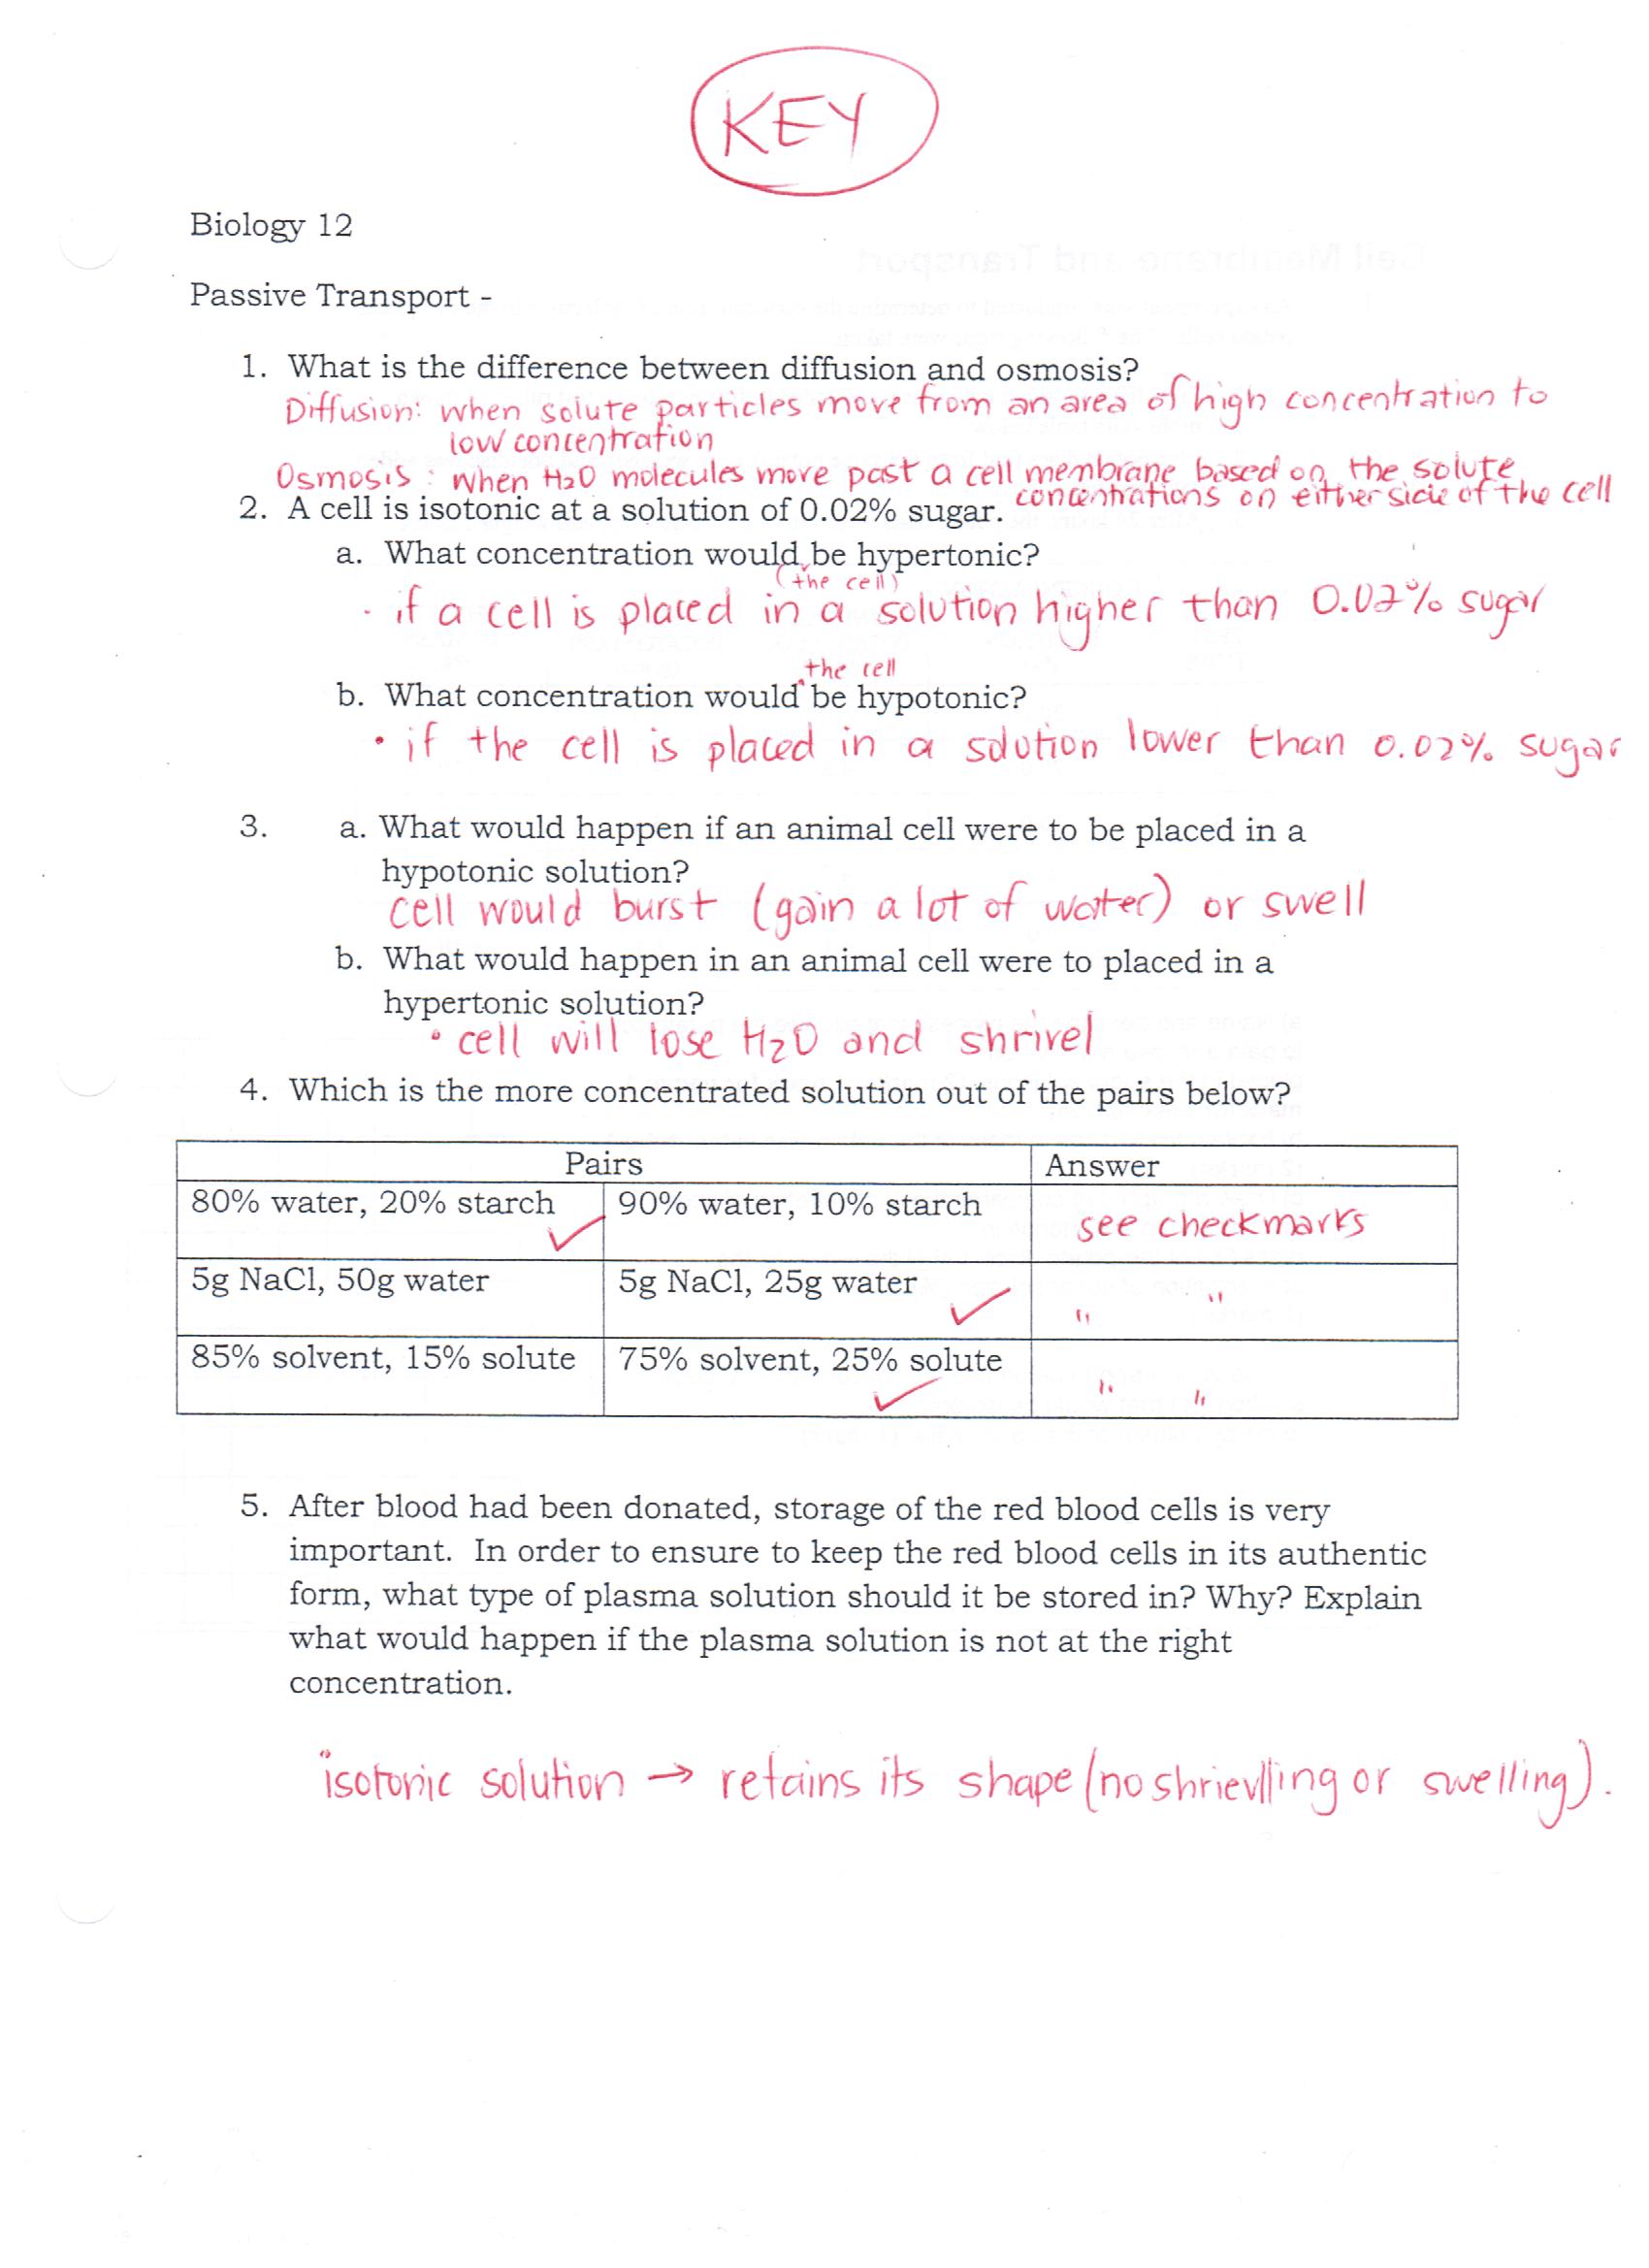 KEY
Biology 12
Passive Transport -
1. What is the difference between diffusion and osmosis?
Diffusion: when solute particles move from an area of high concentration to
low concentration
Osmosis: when H2O molecules move past a cell membrane based on the solute
concentrations on either side of the cell
2. A cell is isotonic at a solution of 0.02% sugar.
a. What concentration would be hypertonic?
(the cell)
· if a cell is placed in a solution higher than 0.02% sugar
the cell
b. What concentration would be hypotonic?
• if the cell is placed in a solution lower than 0.02% sugar
3. a. What would happen if an animal cell were to be placed in a
hypotonic solution?
cell would burst (gain a lot of water) or swell
b. What would happen in an animal cell were to placed in a
hypertonic solution?
• cell will lose H2O and shrivel
4. Which is the more concentrated solution out of the pairs below?
Pairs Answer
80% water, 20% starch ✓ 90% water, 10% starch see checkmarks
5g NaCl, 50g water 5g NaCl, 25g water ✓ " "
85% solvent, 15% solute 75% solvent, 25% solute ✓ " "
5. After blood had been donated, storage of the red blood cells is very
important. In order to ensure to keep the red blood cells in its authentic
form, what type of plasma solution should it be stored in? Why? Explain
what would happen if the plasma solution is not at the right
concentration.
isotonic solution → retains its shape (no shrievlling or swelling).